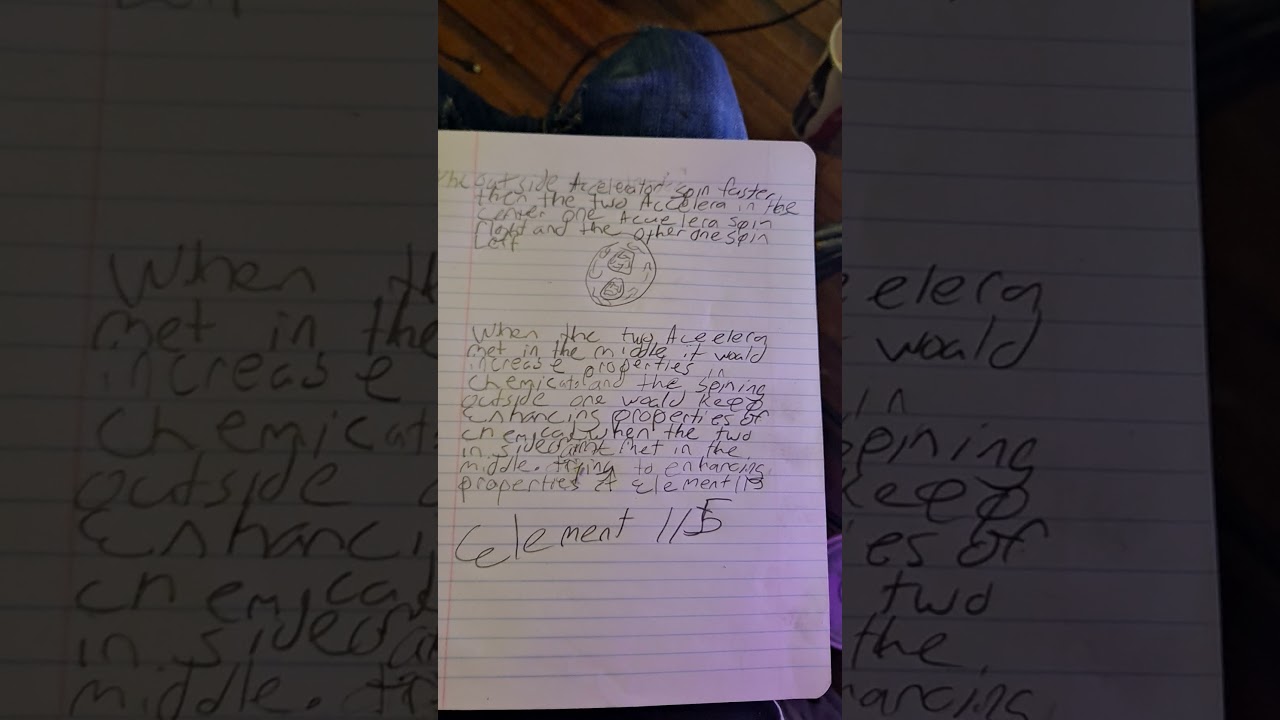 The outside Accelerator spin faster
then the two Accelera in the
center one Accelera spin
Right and the other one spin
Leif
When the two Acelera
met in the middle it woald
increase properties in
chemicals and the spining
outside one would keep
Enhancing properties of
chemical when the two
in side met in the
middle. trying to enhancing
properties of Element 115
Element 115